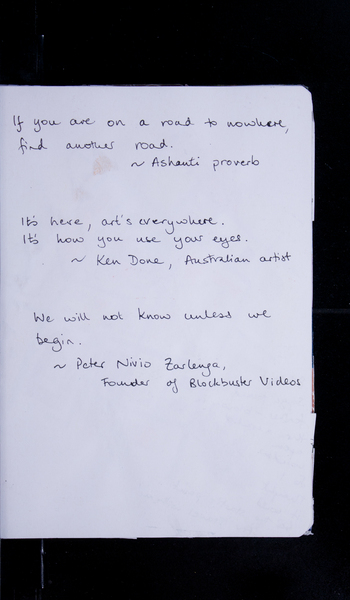 If you are on a road to nowhere,
find another road.
~ Ashanti proverb
It's here, art's everywhere.
It's how you use your eyes.
~ Ken Done, Australian artist
We will not know unless we
begin.
~ Peter Nivio Zarlenga,
Founder of Blockbuster Videos